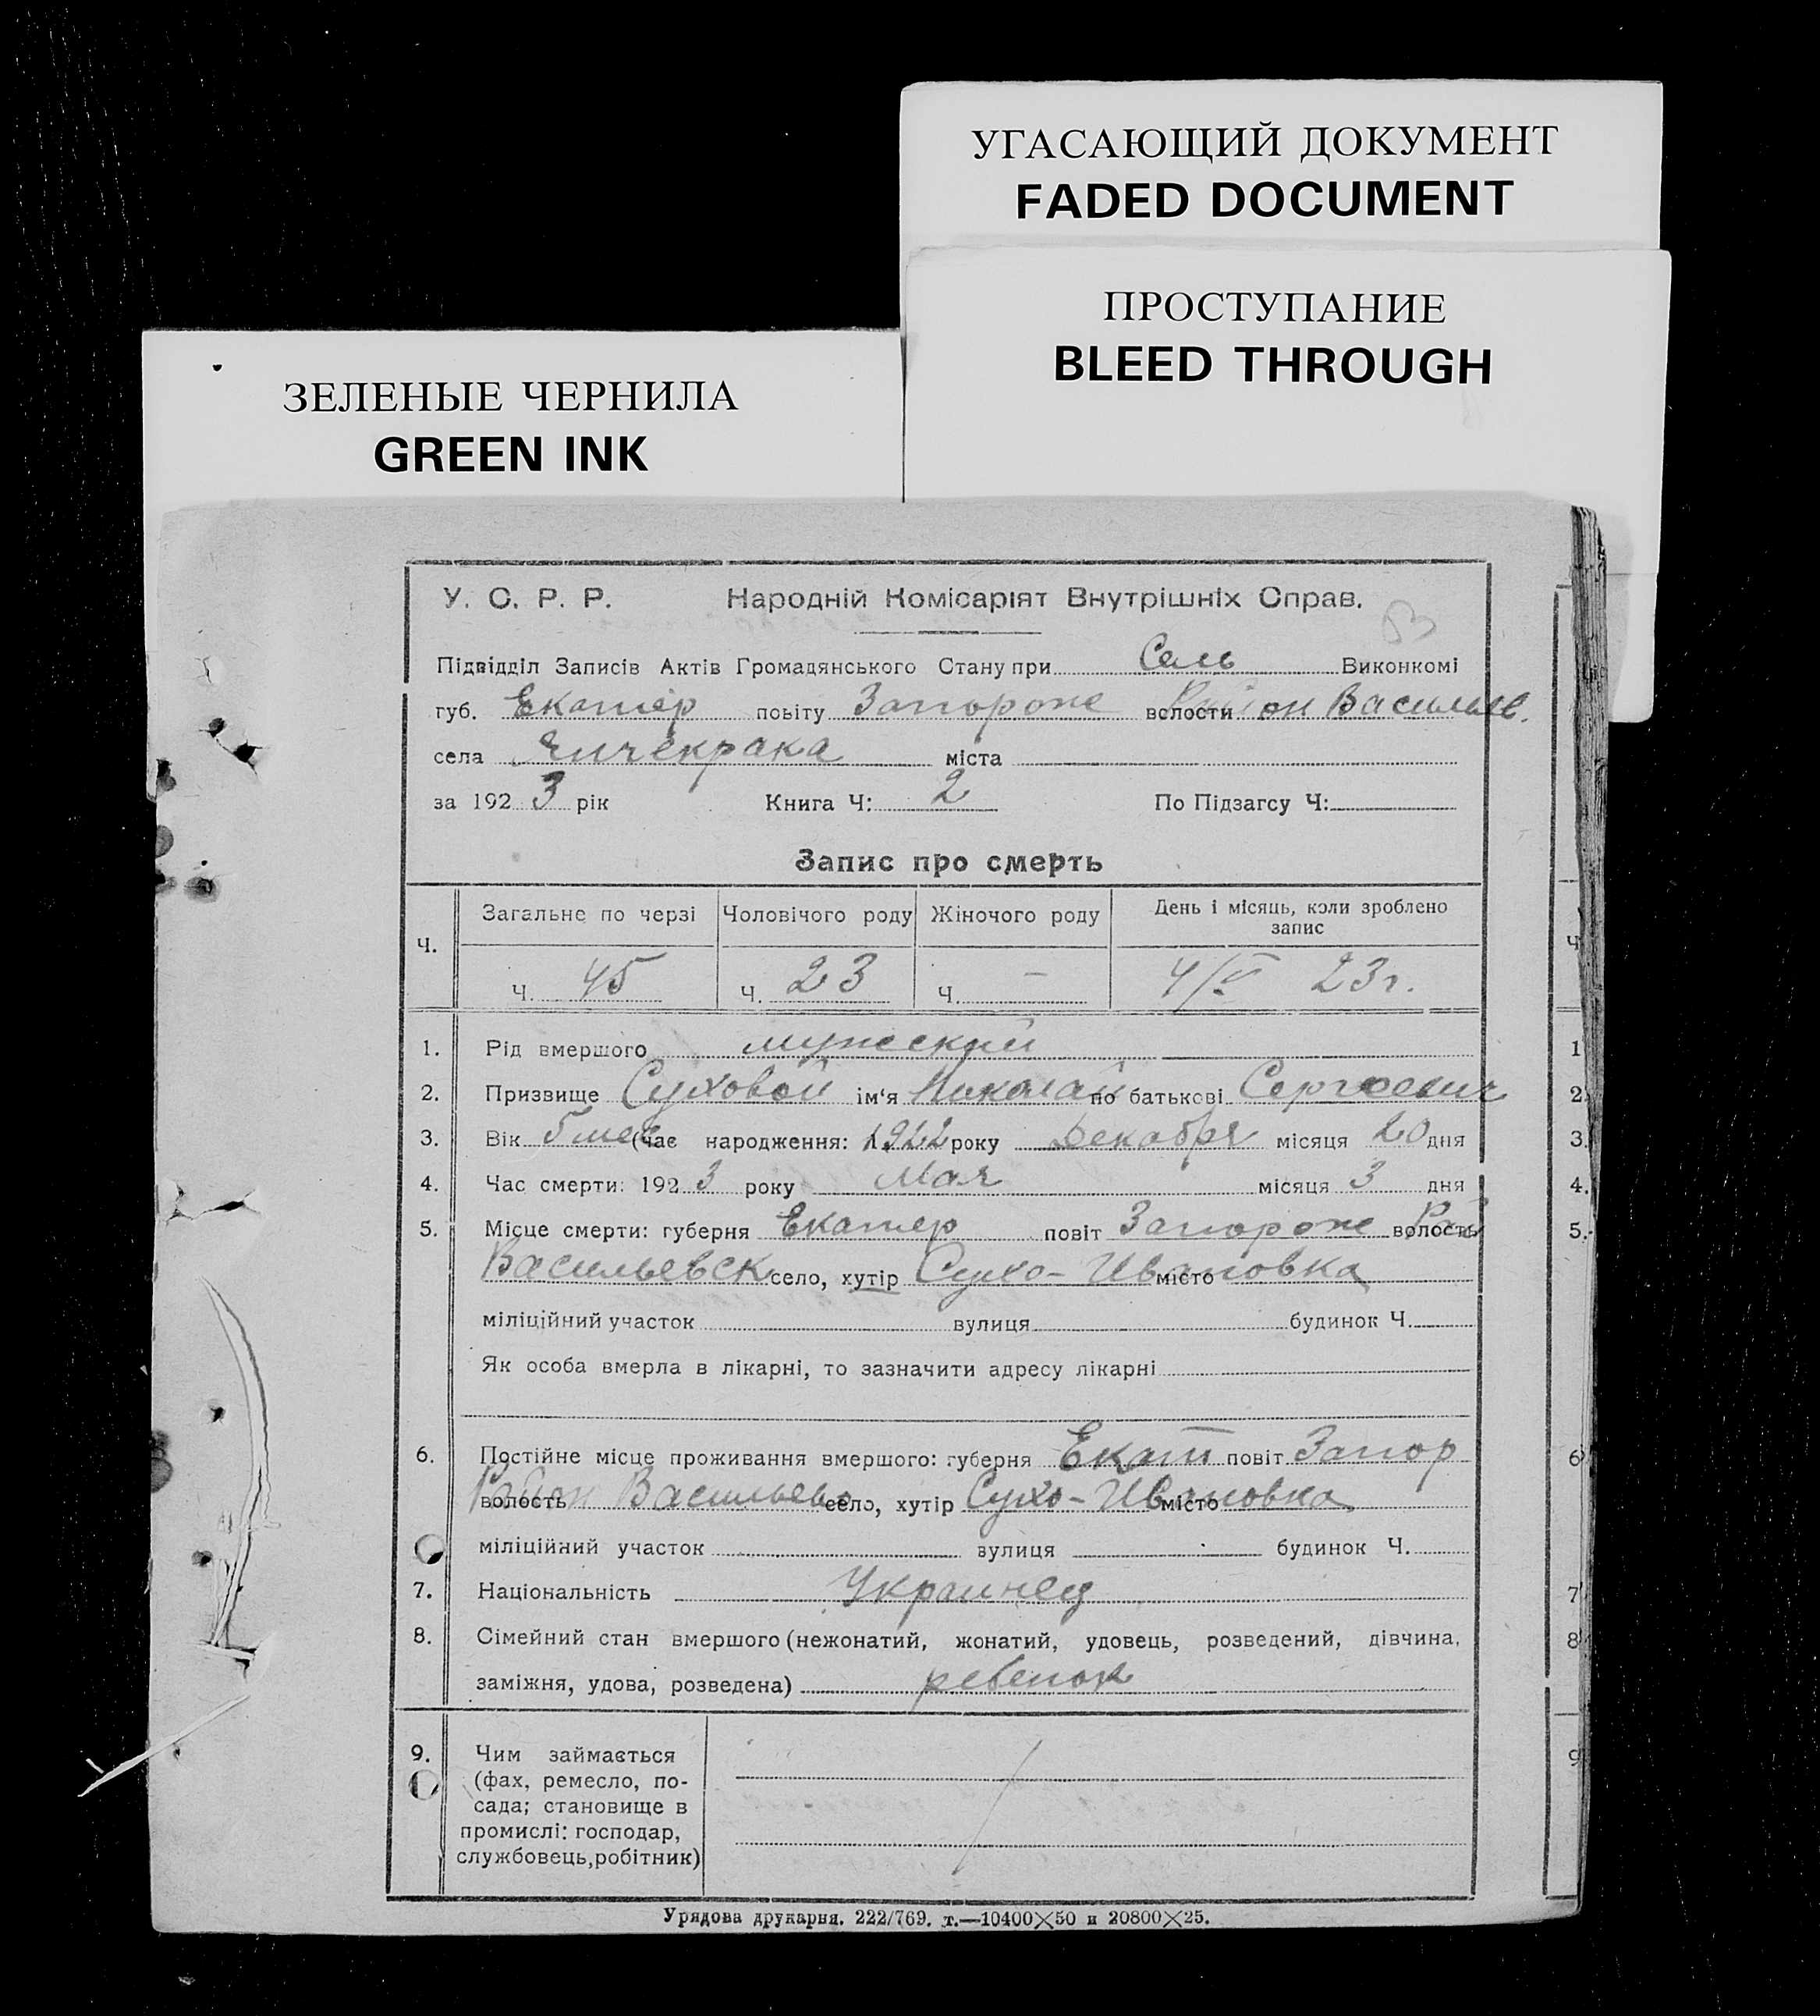 УГАСАЮЩИЙ ДОКУМЕНТ
FADED DOCUMENT
ПРОСТУПАНИЕ
BLEED THROUGH
ЗЕЛЕНЫЕ ЧЕРНИЛА
GREEN INK
У. С. Р. Р. Народній Комісаріят Внутрішніх Справ.
53
Підвідділ Записів Актів Громадянського Стану при Сель Виконкомі
губ. Екатер повіту Запорож волости Район Васильев.
села Янчекрака міста
за 1923 рік Книга Ч: 2 По Підзагсу Ч:
Запис про смерть
Ч. Загальне по черзі Чоловічого роду Жіночого роду День і місяць, коли зроблено запис
Ч. 45 Ч. 23 Ч. – 4/V 23 г.
1. Рід вмершого мужеский
2. Призвище Суховой ім'я Николай по батькові Сергеевич
3. Вік 5 мес (час народження: 1922 року Декабря місяця 20 дня
4. Час смерти: 1923 року Мая місяця 3 дня
5. Місце смерти: губерня Екатер повіт Запорож волость Рай
Васильевск село, хутір Сухо-Ивановка місто
міліційний участок вулиця будинок Ч.
Як особа вмерла в лікарні, то зазначити адресу лікарні
6. Постійне місце проживання вмершого: губерня Екат повіт Запор
волость Район Васильевс село, хутір Сухо-Ивановка місто
міліційний участок вулиця будинок Ч.
7. Національність Украинец
8. Сімейний стан вмершого (нежонатий, жонатий, удовець, розведений, дівчина,
заміжня, удова, розведена) ребенок
9. Чим займається
(фах, ремесло, по-
сада; становище в
промислі: господар,
службовець, робітник)
Урядова друкарня. 222/769. т.—10400×50 и 20800×25.
Ч
1
2.
3.
4.
5.
6
7
8
9